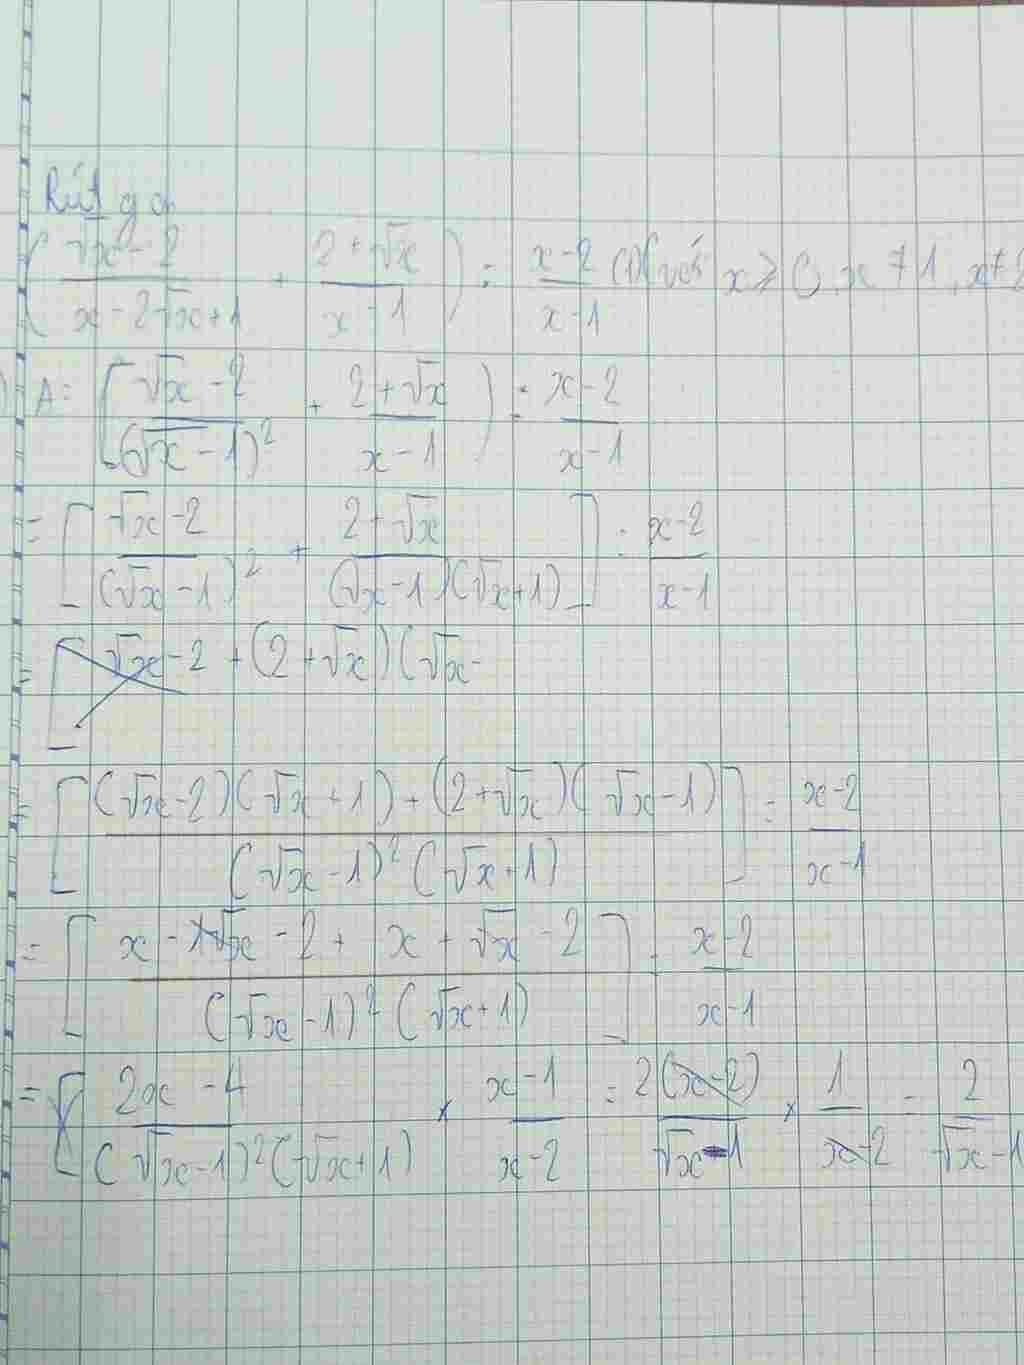 Rút gọn
( (√x - 2)/(x - 2√x + 1) + (2 + √x)/(x - 1) ) : (x - 2)/(x - 1) (với x ≥ 0, x ≠ 1, x ≠ 2
A = [ (√x - 2)/(√x - 1)² + (2 + √x)/(x - 1) ) : (x - 2)/(x - 1)
= [ (√x - 2)/(√x - 1)² + (2 + √x)/((√x - 1)(√x + 1)) ] : (x - 2)/(x - 1)
= [ √x - 2 + (2 + √x)(√x -
= [ ((√x - 2)(√x + 1) + (2 + √x)(√x - 1))/((√x - 1)²(√x + 1)) ] : (x - 2)/(x - 1)
= [ (x - √x - 2 + x + √x - 2)/((√x - 1)²(√x + 1)) ] : (x - 2)/(x - 1)
= (2x - 4)/((√x - 1)²(√x + 1)) × (x - 1)/(x - 2) = 2(x - 2)/(√x - 1) × 1/(x - 2) = 2/(√x - 1)